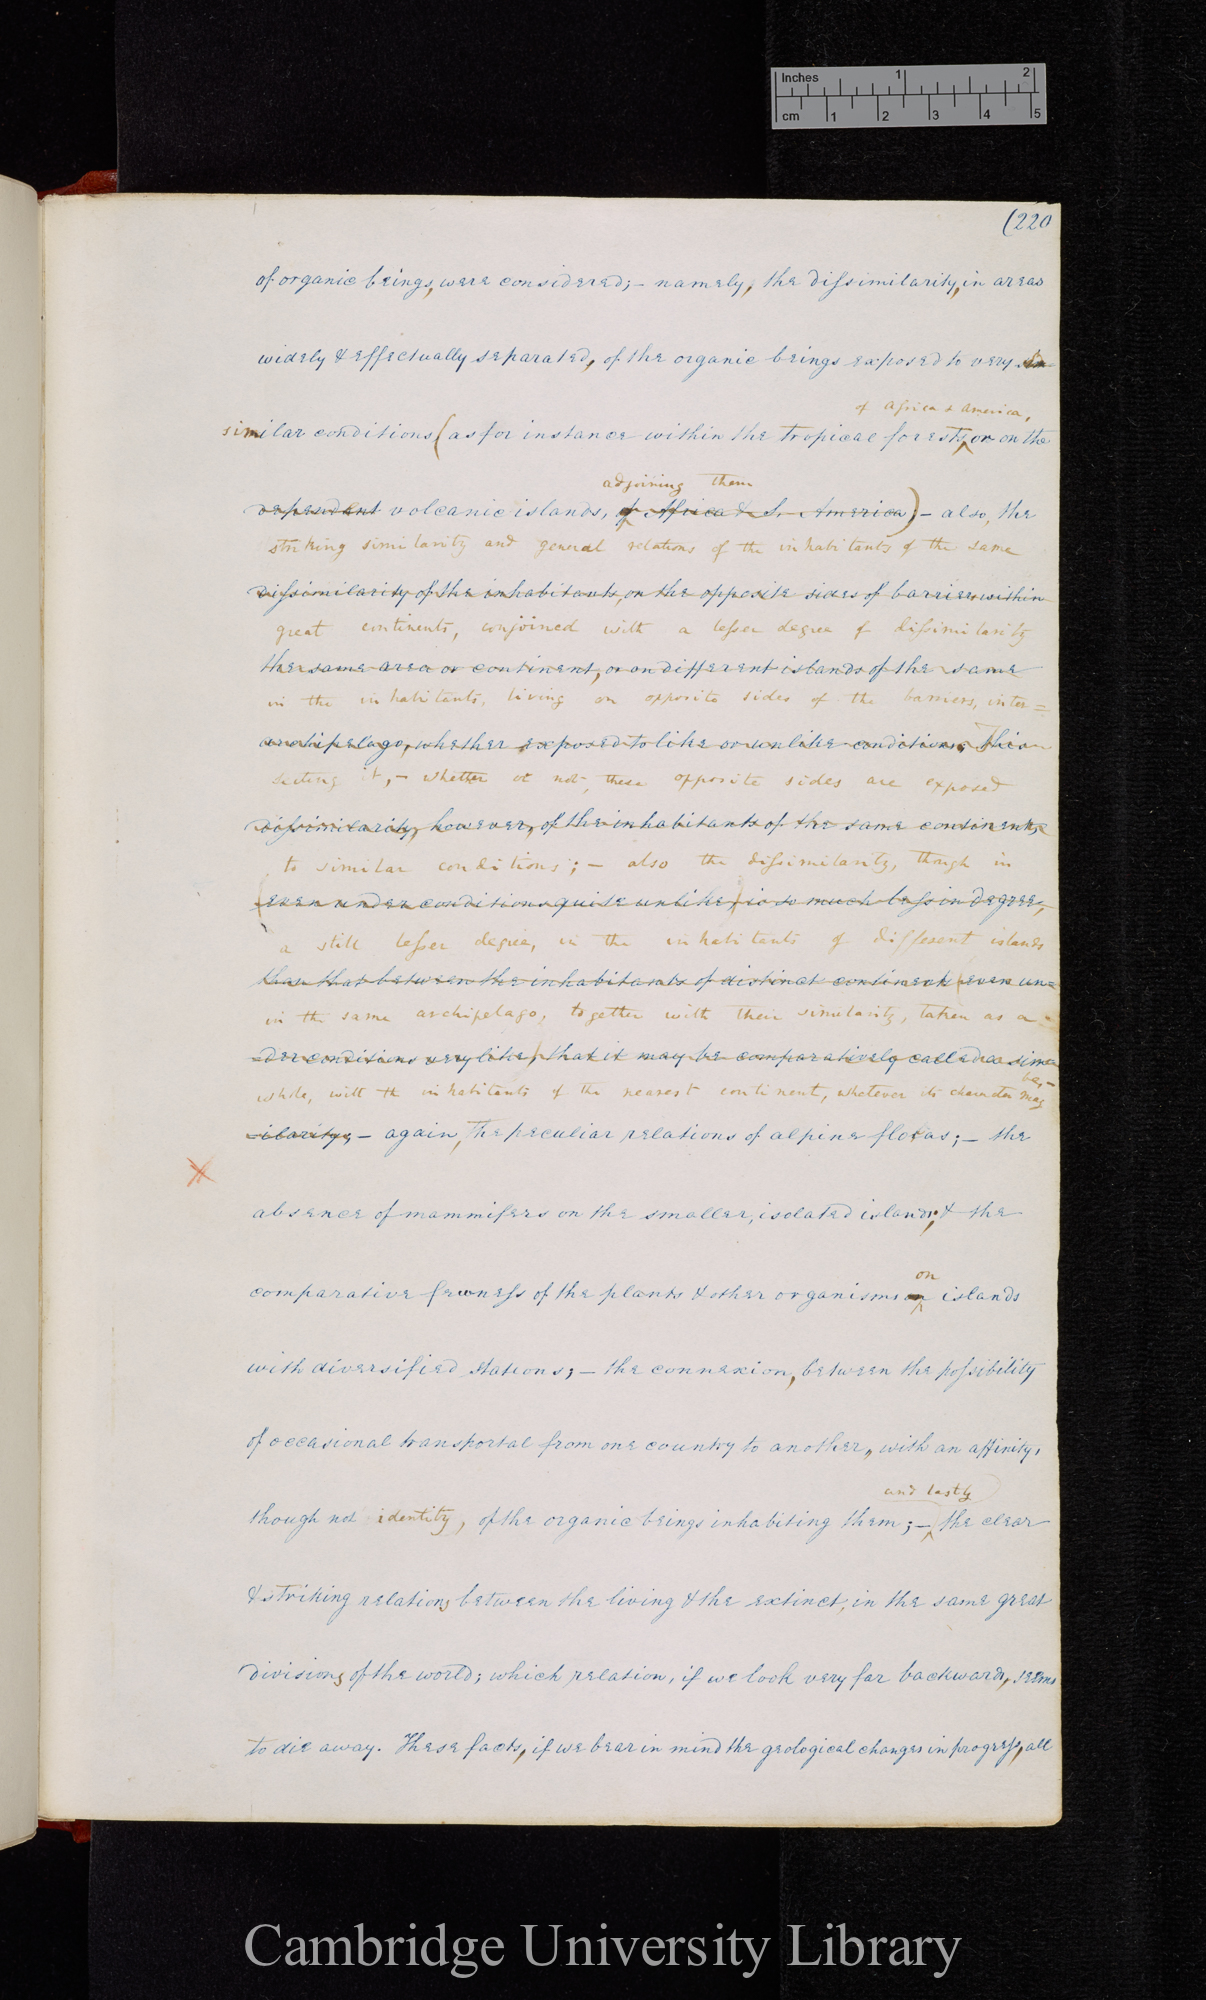 Inches 1 2
cm 1 2 3 4 5
(220
of organic beings, were considered; – namely, the dissimilarity, in areas
widely & effectually separated, of the organic beings exposed to very
of Africa & America,
similar conditions (as for instance within the tropical forests, or on the
adjoining them
dependent volcanic islands, of Africa & S. America) – also, the
striking similarity and general relations of the inhabitants of the same
dissimilarity of the inhabitants, on the opposite sides of barriers within
great continents, conjoined with a lesser degree of dissimilarity
the same area or continent, or on different islands of the same
in the inhabitants, living on opposite sides of the barriers, inter=
archipelago, whether exposed to like or unlike conditions. This
secting it, – whether or not, these opposite sides are exposed
dissimilarity, however, of the inhabitants of the same continent,
to similar conditions; – also the dissimilarity, though in
(even under conditions quite unlike) is so much less in degree,
a still lesser degree, in the inhabitants of different islands
than that between the inhabitants of distinct continents (even un=
in the same archipelago, together with their similarity, taken as a
=der conditions very like) that it may be comparatively called a sim=
be, –
whole, with the inhabitants of the nearest continent, whatever its character may
=ilarity, – again, the peculiar relations of alpine floras; – the
absence of mammifers on the smaller, isolated islands; & the
on
comparative fewness of the plants & other organisms on islands
with diversified stations; – the connexion, between the possibility
of occasional transportal from one country to another, with an affinity,
and lastly
though not identity, of the organic beings inhabiting them; – the clear
& striking relations between the living & the extinct, in the same great
divisions of the world; which relation, if we look very far backwards, seems
to die away. These facts, if we bear in mind the geological changes in progress, all
Cambridge University Library